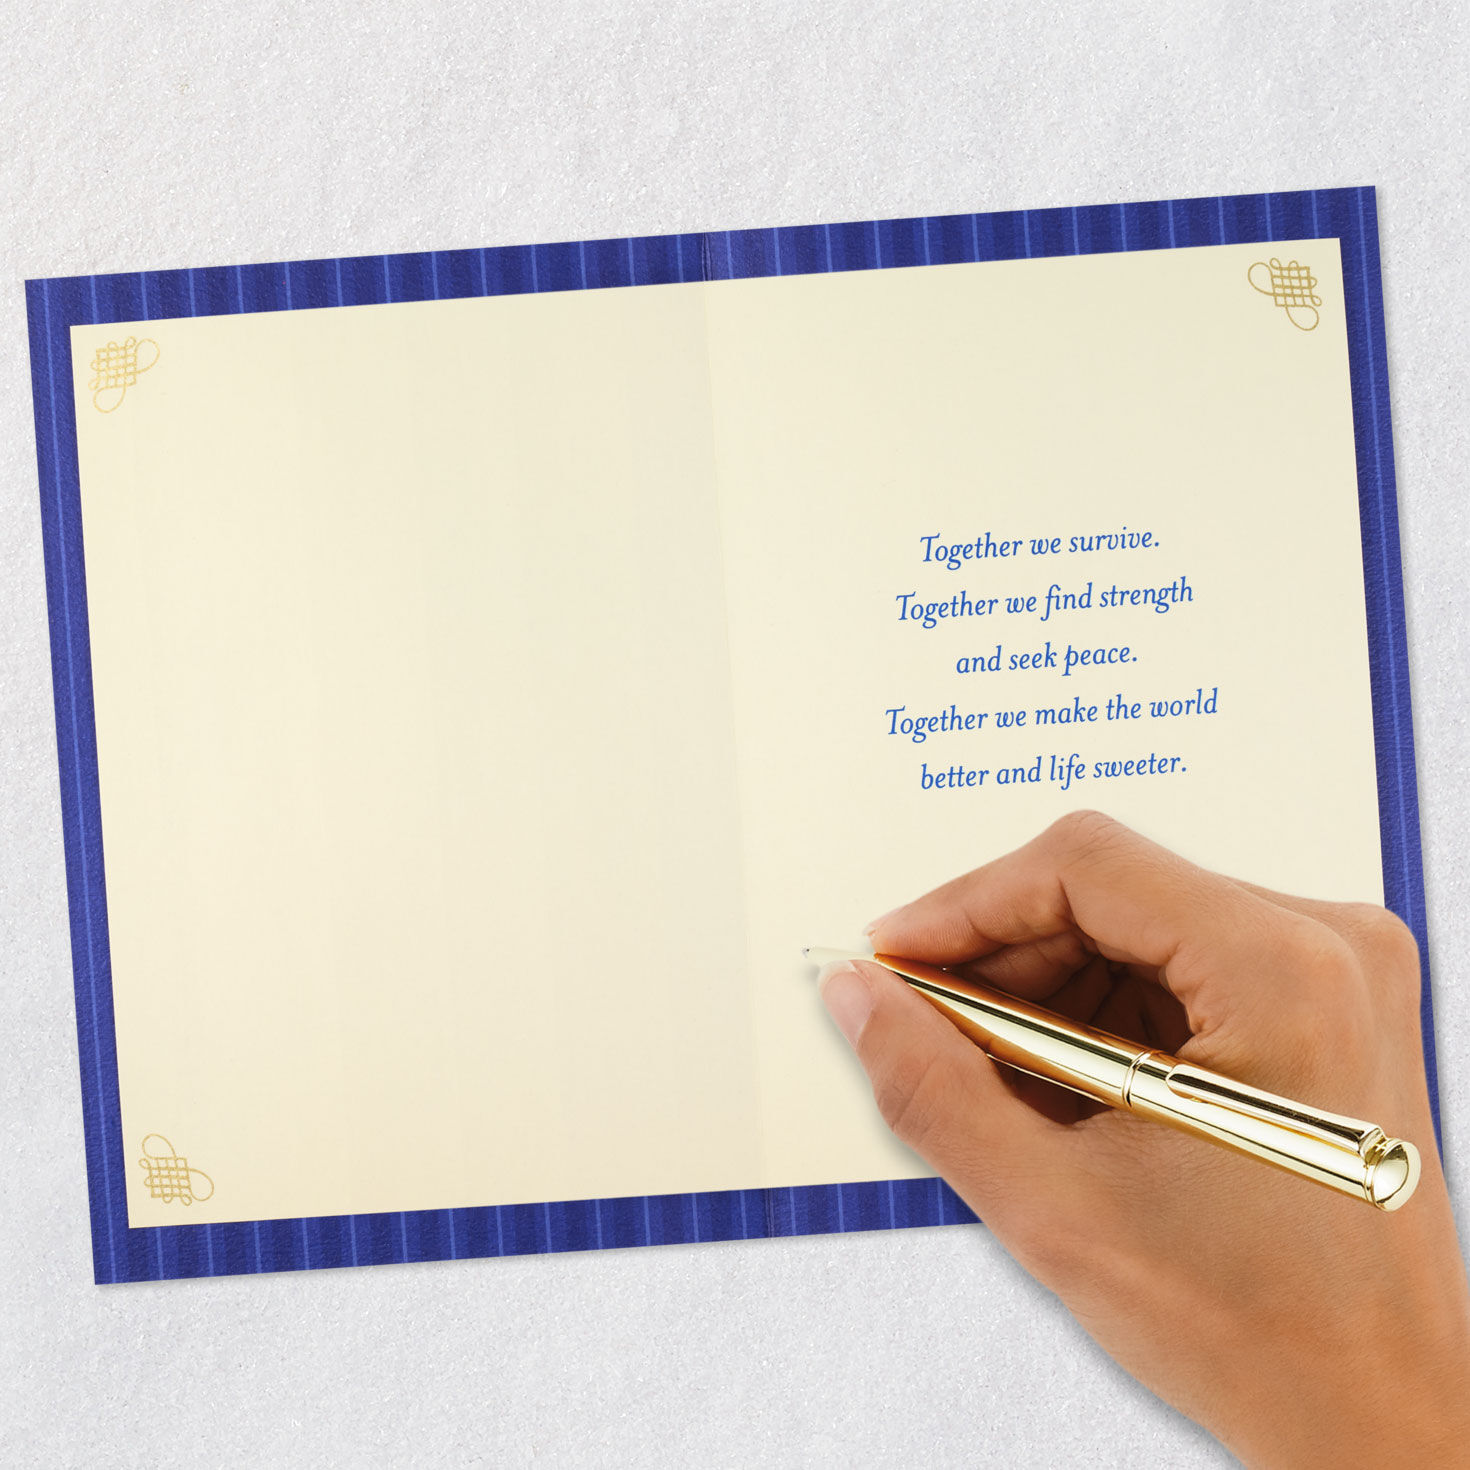 Together we survive.
Together we find strength
and seek peace.
Together we make the world
better and life sweeter.